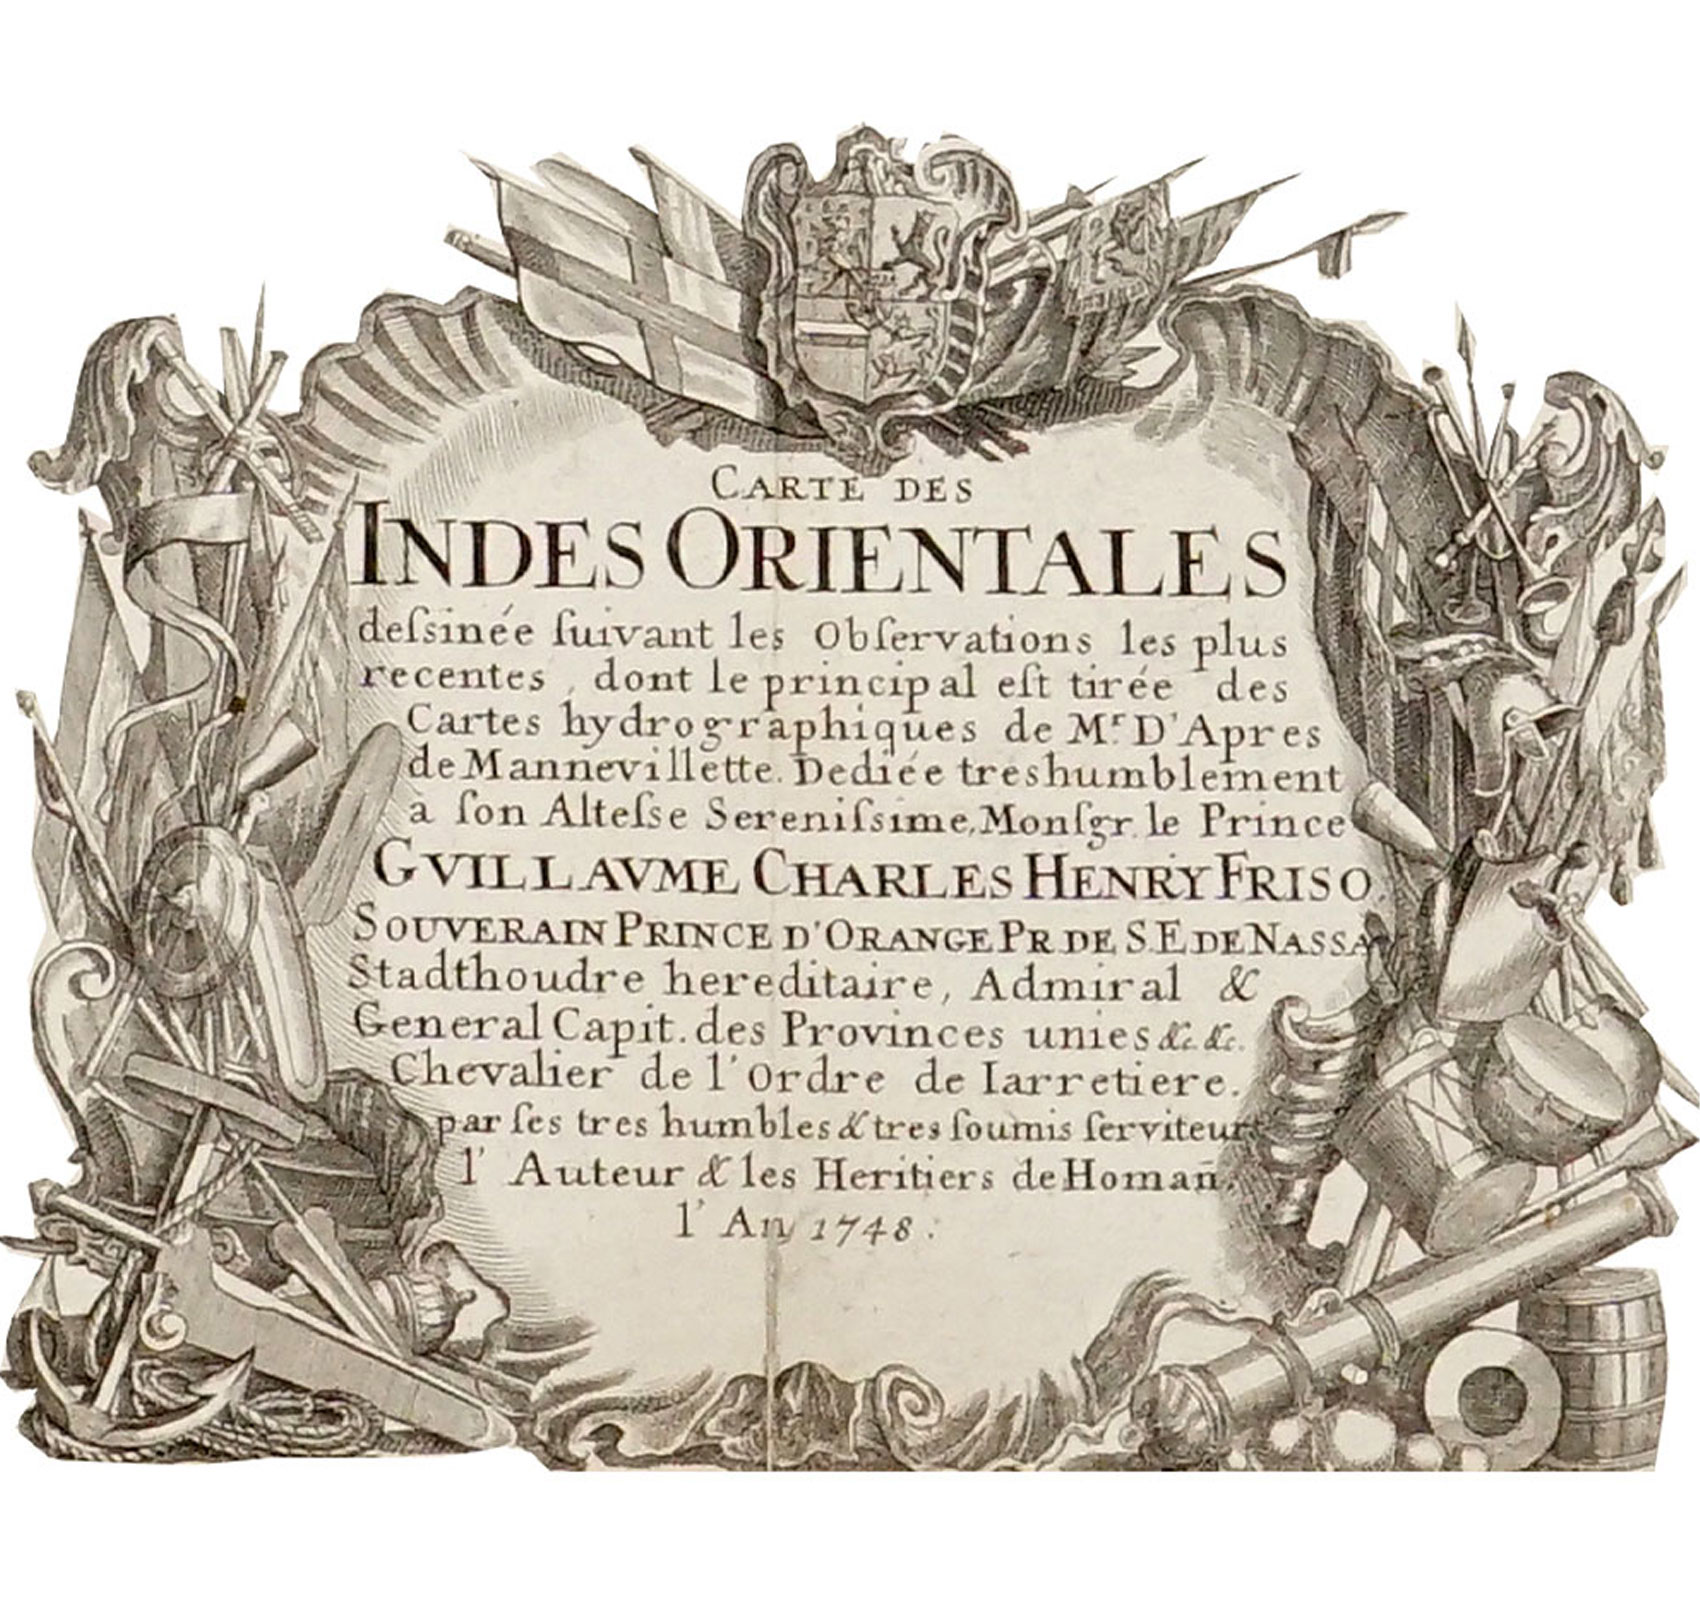 CARTE DES
INDES ORIENTALES
deſsinée ſuivant les Obſervations les plus
recentes, dont le principal eſt tirée des
Cartes hydrographiques de Mr. D'Apres
de Mannevillette. Dediée treshumblement
a ſon Alteſse Sereniſsime, Monſgr. le Prince
GVILLAVME CHARLES HENRY FRISO,
SOUVERAIN PRINCE D'ORANGE PR DE S.E DE NASSA
Stadthoudre hereditaire, Admiral &
General Capit. des Provinces unies &c. &c.
Chevalier de l'Ordre de Iarretiere.
par ſes tres humbles & tres ſoumis ſerviteurs
l' Auteur & les Heritiers de Homan̄.
l' An 1748.